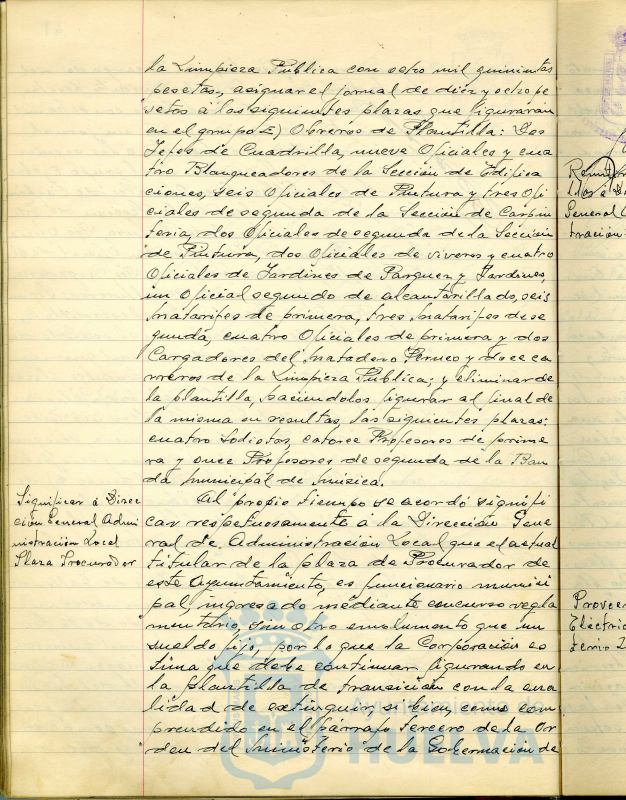 la Limpieza Publica con ocho mil quinientas
pesetas, asignar el jornal de diez y ocho pe
setas á las siguientes plazas que figuraran
en el grupo E) Obreros de Plantilla: Dos
Jefes de Cuadrilla, nueve Oficiales y cua
tro Blanqueadores de la Sección de Edifica
ciones, seis Oficiales de Pintura y tres Ofi
ciales de segunda de la Sección de Carpin
teria, dos Oficiales de segunda de la Sección
de Pintura, dos Oficiales de viveros y cuatro
Oficiales de Jardines de Parques y Jardines,
un Oficial segundo de alcantarillado, seis
Matarifes de primera, tres Matarifes de se
gunda, cuatro Oficiales de primera y dos
Cargadores del Matadero Publico y doce ca
rreros de la Limpieza Publica; y eliminar de
la plantilla, haciendolos figurar al final de
la misma en resultas, las siguientes plazas:
cuatro Solistas, catorce Profesores de prime
ra y once Profesores de segunda de la Ban
da Municipal de Música.
Significar á Direc
ción General Admi
nistración Local
Plaza Procurador
Al propio tiempo se acordó signifi
car respetuosamente á la Dirección Gene
ral de Administración Local que el actual
titular de la plaza de Procurador de
este Ayuntamiento, es funcionario munici
pal, ingresado mediante concurso regla
mentario, sin otro emolumento que un
sueldo fijo, por lo que la Corporación es
tima que debe continuar figurando en
la plantilla de transición con la cua
lidad de extinguir, si bien, como com
prendido en el párrafo tercero de la Or
den del Ministerio de la Gobernación de
General
tración
Provee
Electric
terio
Ayuntamiento de
HUELVA